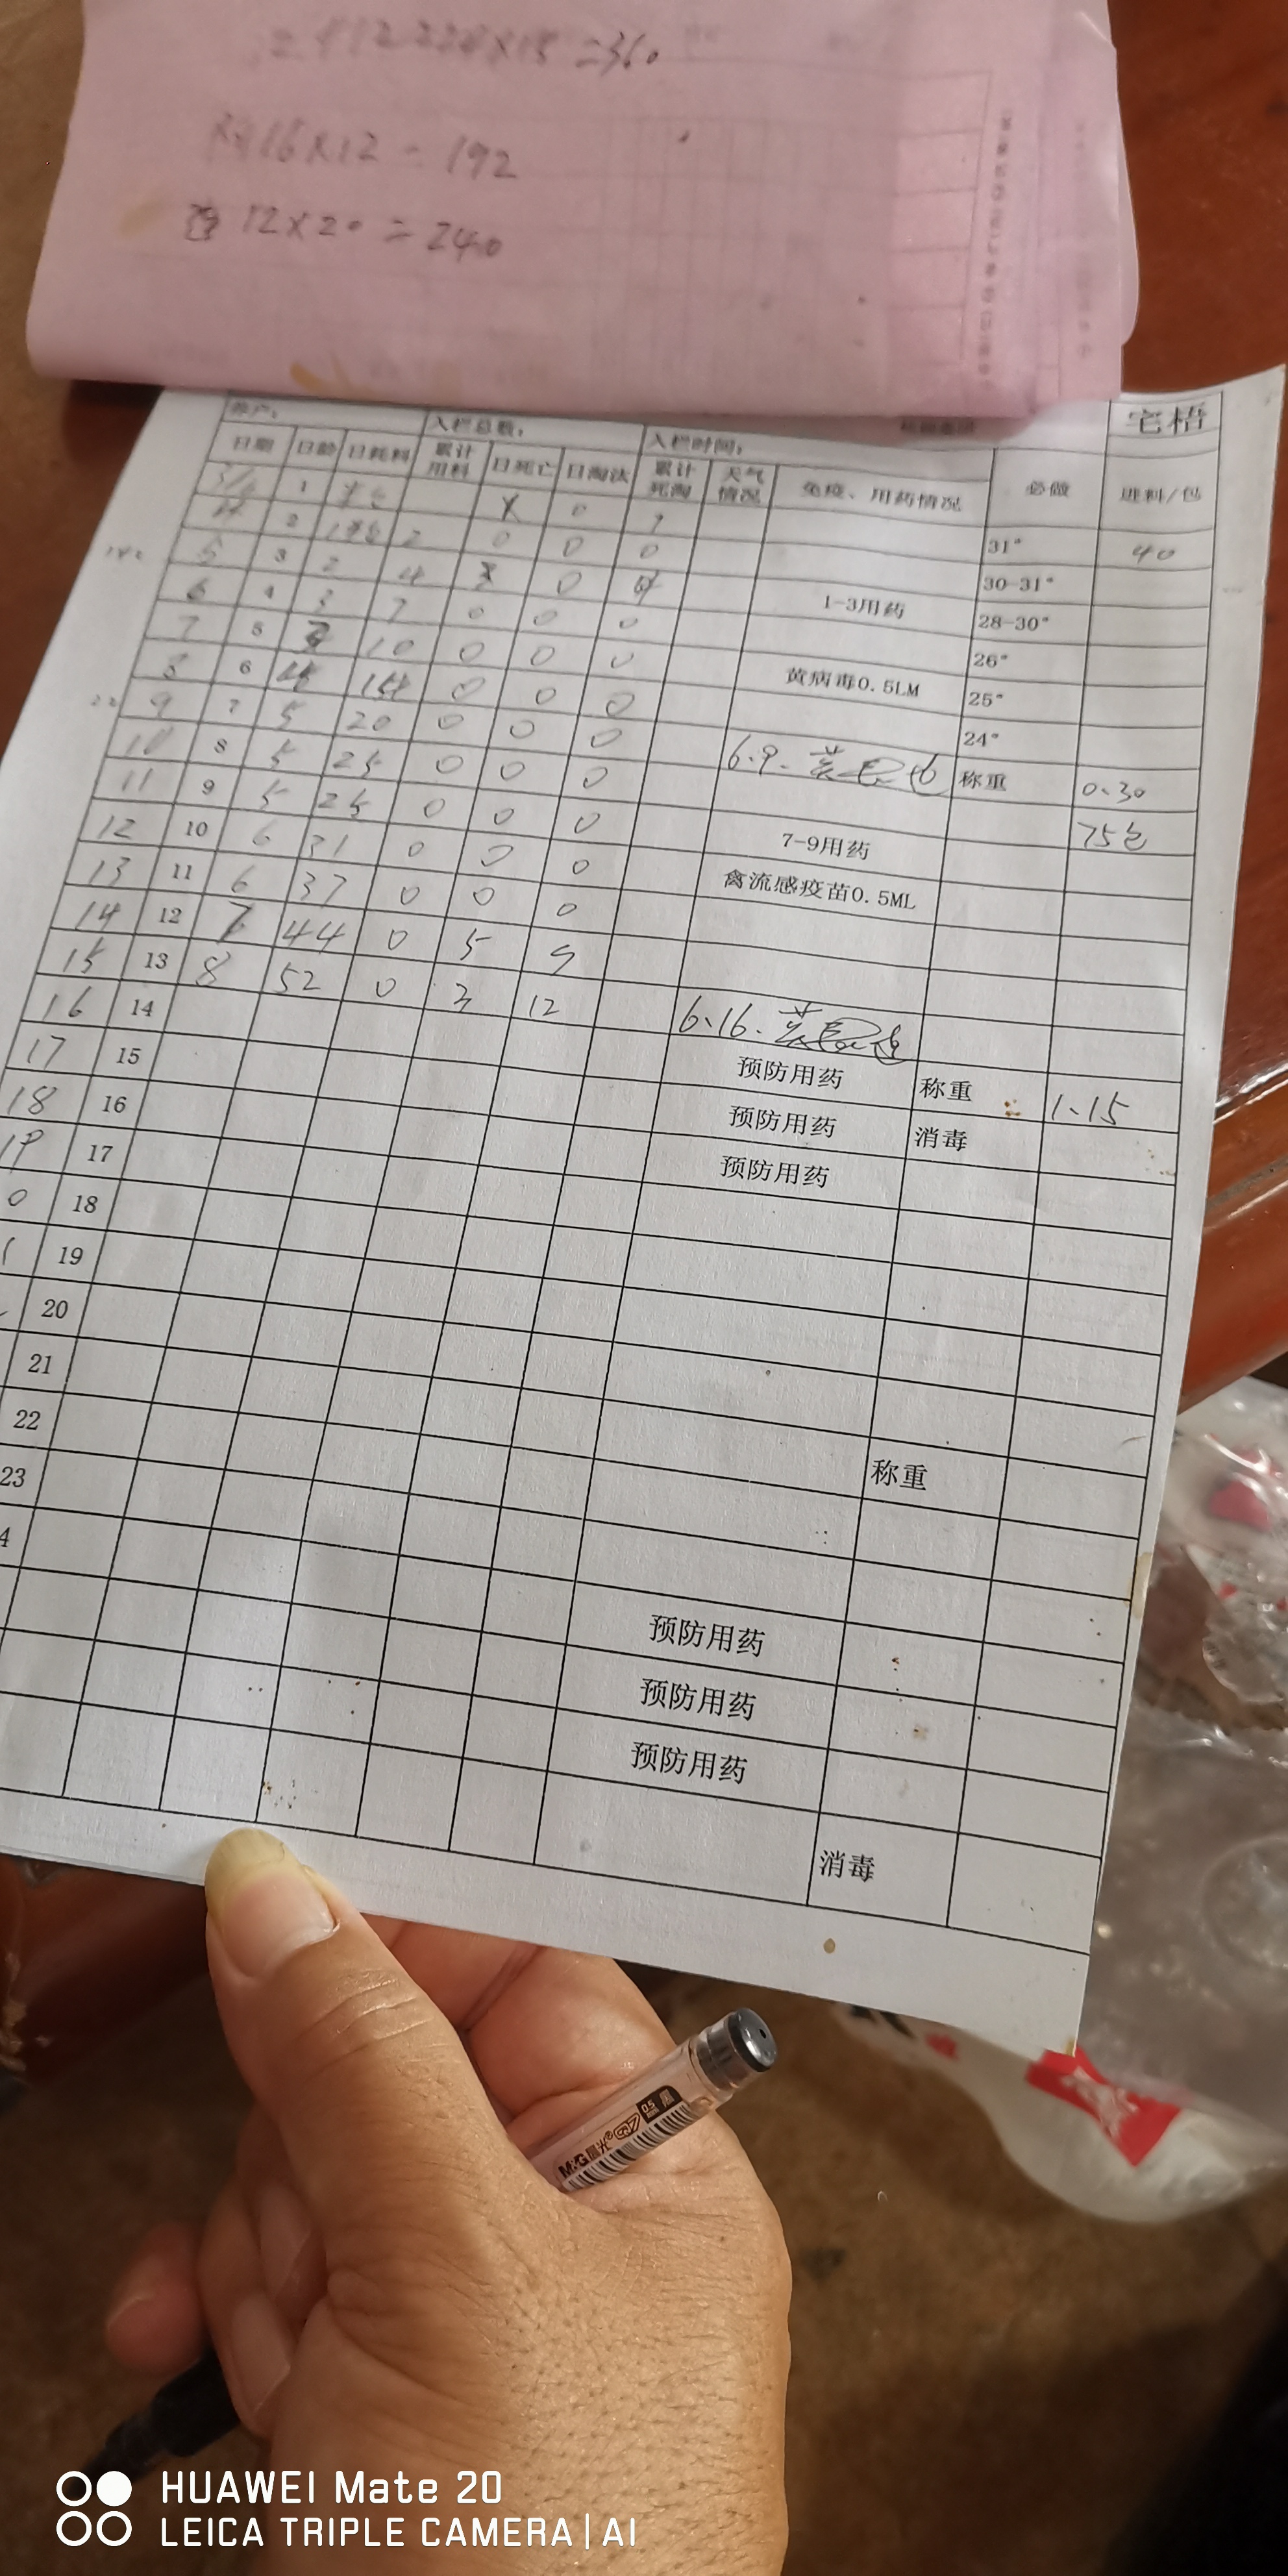 =360
16×12=192
12×20=240
入栏总数: 入栏时间: 宅梧
日期 日龄 日耗料 累计用料 日死亡 日淘汰 累计死淘 天气情况 免疫、用药情况 必做 进料/包
1 0 31° 40
2 2 0 0 0 30-31°
5 3 2 4 0 1-3用药 28-30°
6 4 3 7 0 0 0 26°
7 5 10 0 0 0 黄病毒0.5LM 25°
8 6 0 0 0 24°
9 7 5 20 0 0 0 6.9. 称重 0.30
10 8 5 25 0 0 0 75包
11 9 5 25 0 0 0 7-9用药
12 10 6 31 0 0 0 禽流感疫苗0.5ML
13 11 6 37 0 0 0
14 12 7 44 0 5 9
15 13 8 52 0 3 12 6.16.
16 14 预防用药 称重 1.15
17 15 预防用药 消毒
18 16 预防用药
19 17
0 18
19
20
21 称重
22
23
4 预防用药
预防用药
预防用药
消毒
M&G 晨光 0.5 黑
HUAWEI Mate 20
LEICA TRIPLE CAMERA | AI